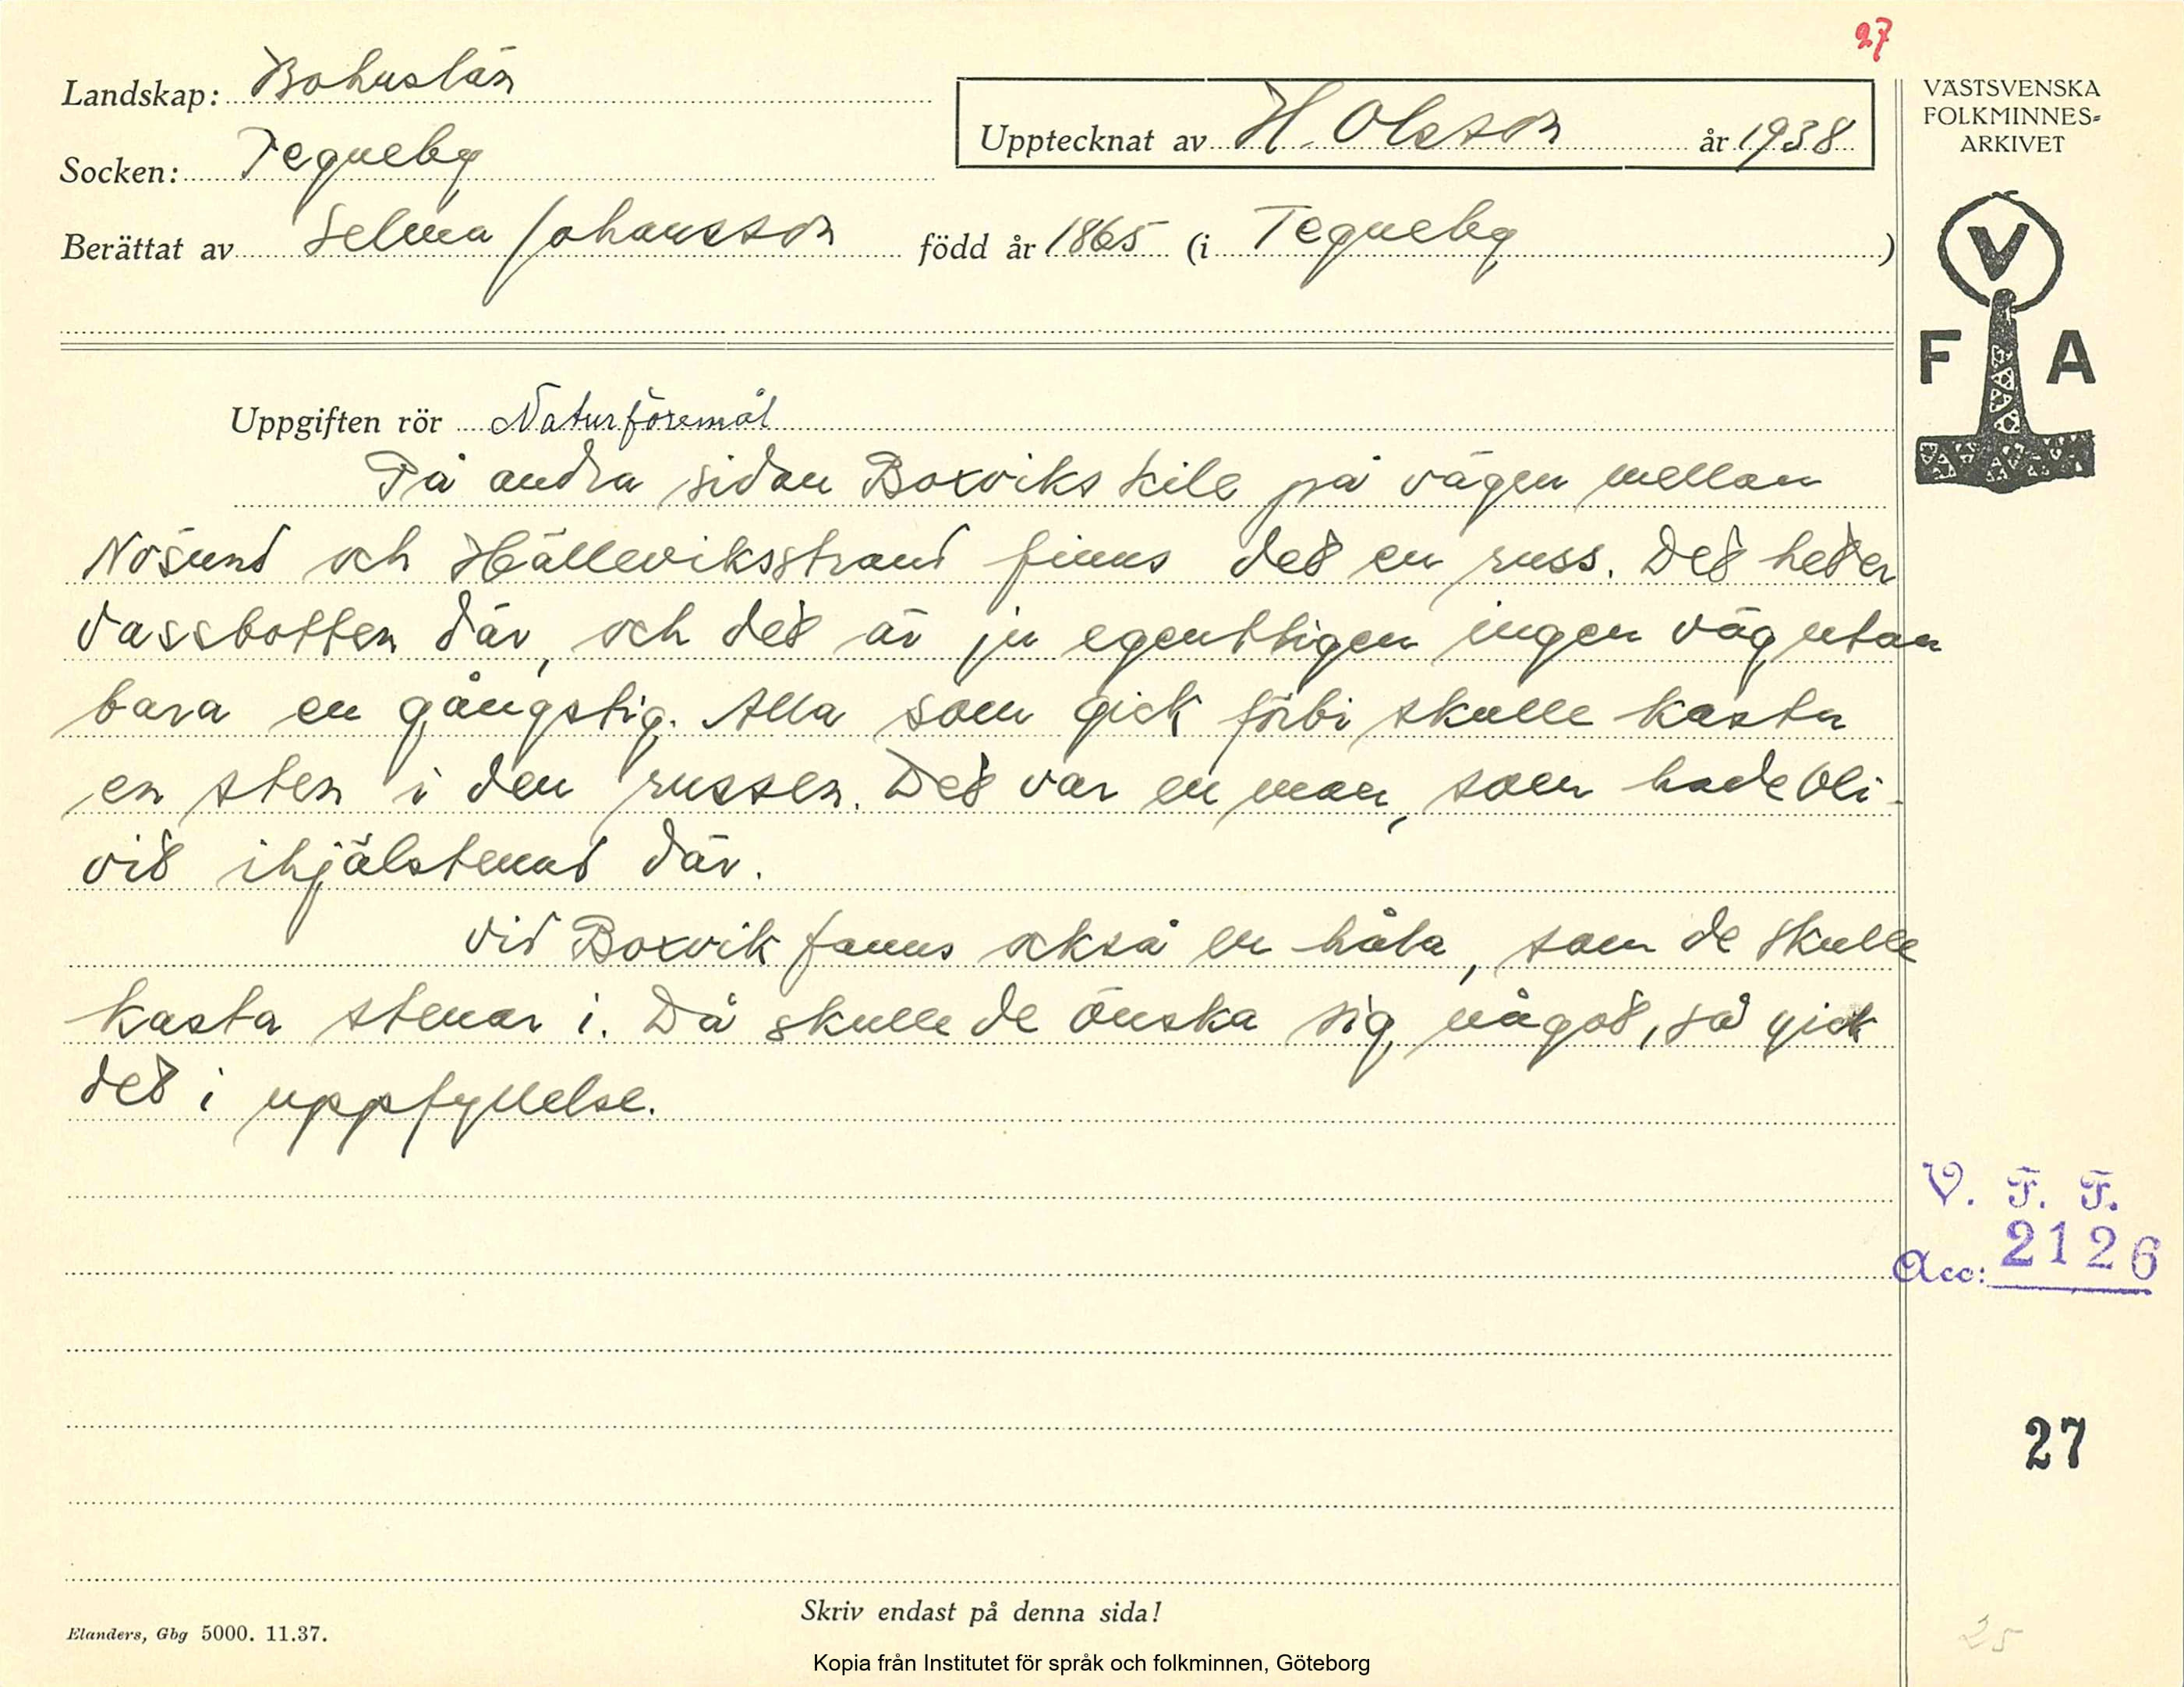 27
Landskap: Bohuslän
Socken: Tegneby
Upptecknat av H. Olsson år 1938
Berättat av Selma Johansson född år 1865 (i Tegneby )
VÄSTSVENSKA
FOLKMINNES=
ARKIVET
V
F A
Uppgiften rör Naturföremål
På andra sidan Boxviks kile på vägen mellan
Nösund och Hälleviksstrand finns det en russ. Det heter
Vassbotten där, och det är ju egentligen ingen väg utan
bara en gångstig. Alla som gick förbi skulle kasta
en sten i den russen. Det var en man, som hade bli-
vit ihjälstenad där.
Vid Boxvik fanns också en håla, som de skulle
kasta stenar i. Då skulle de önska sig något, så gick
det i uppfyllelse.
V. F. F.
Acc: 2126
27
Skriv endast på denna sida!
Elanders, Gbg 5000. 11.37.
25
Kopia från Institutet för språk och folkminnen, Göteborg